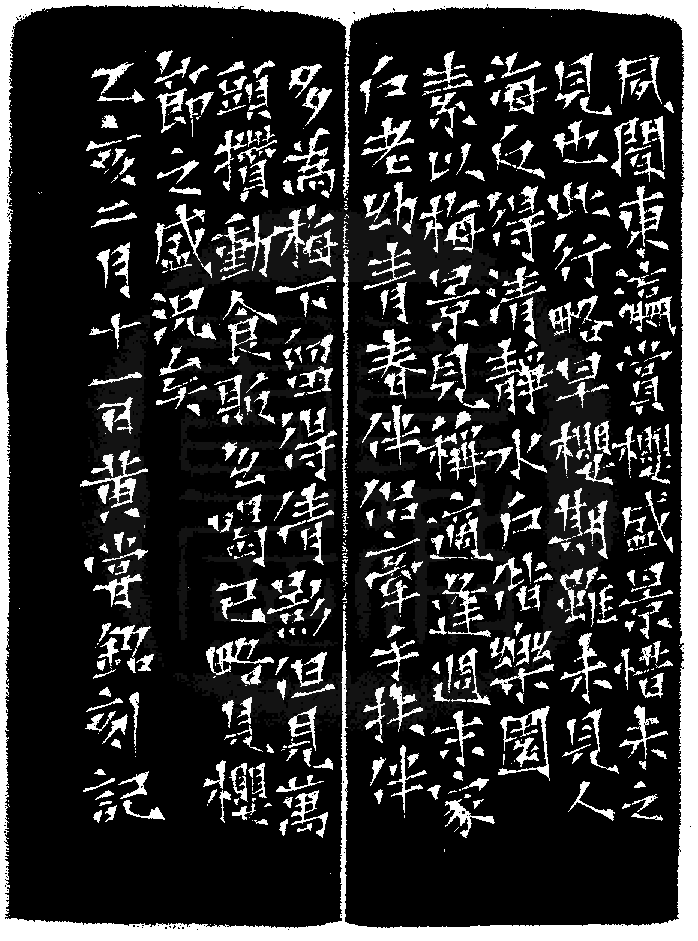 夙聞東瀛賞櫻盛景惜未之
見也此行略早櫻期雖未見人
海反得清靜水戶偕樂園
素以梅景見稱適逢週末家
戶老幼青春伴侶牽手扶伴
多為梅下留得倩影但見萬
頭攢動食販吆喝已略見櫻
節之盛況矣
乙亥二月十一日黃嘗銘刻記